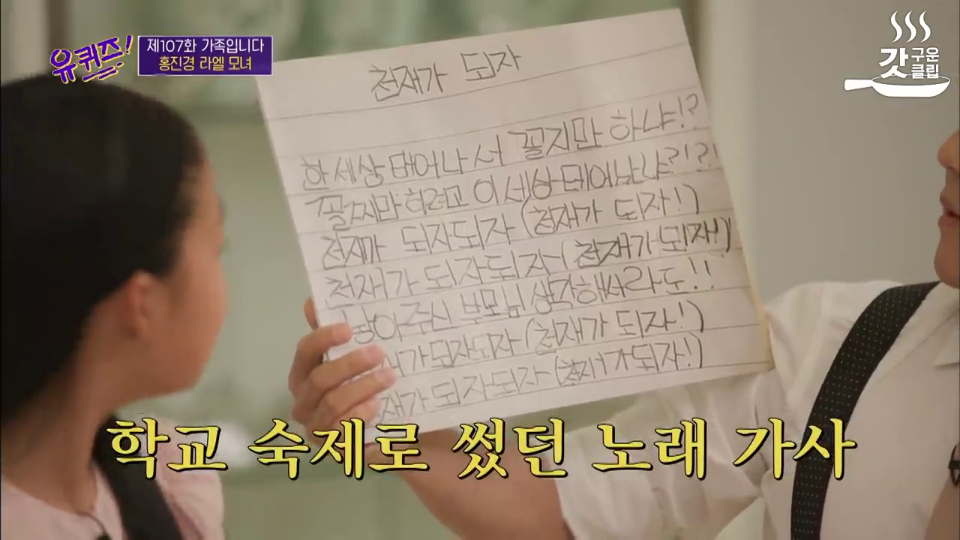 유퀴즈!
제107화 가족입니다
홍진경 라엘 모녀
갓구운클립
천재가 되자
한 세상 태어나서 꼴지만 하냐!?
꼴찌만 하려고 이 세상 테어났냐?!?!
천재가 되자되자 (천재가 되자!)
천재가 되자되자 (천재가 되자!)
낳아주신 부모님 생각해서라도!!
가 되자되자 (천재가 되자!)
재가 되자되자 (천재가 되자!)
학교 숙제로 썼던 노래 가사